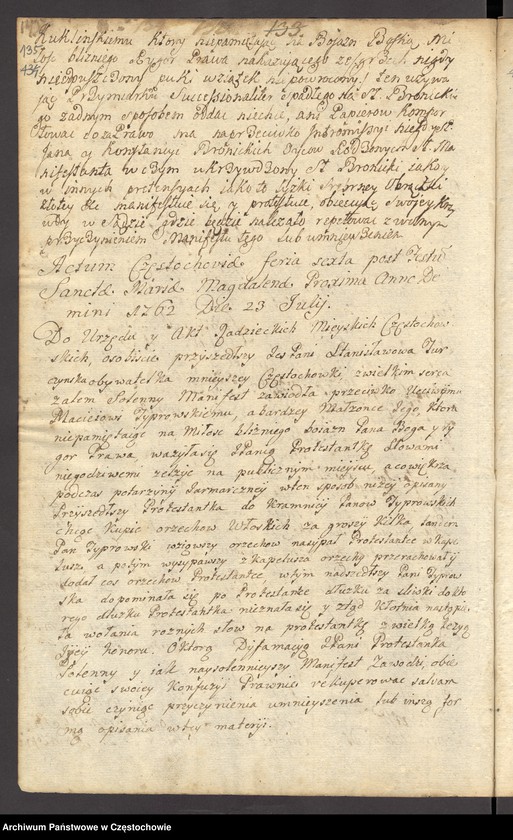 135
135
134
Kuklinskiemu ktory niepamiętając na Boiazn Boską Mi
łosc bliznego Rygor Prawa nakazuiącego
nieodpuszczony puki wziątek nie powrocony
Successionaliter spadłego na St. Bronickie
go zadnym sposobem oddac niechce, ani Papierow
na naprzeciwko niegdy
Jana y Konstancyi Bronickich Oycow Rodzonych St. Ma
nifestanta w czym ukrzywdzony St. Bronicki iako y
w innych pretensyach iako to
złotey sie manifestuie się, y protestuie, obiecuie swoiey krzy
wdy w Sądzie gdzie będzie nalezało repetowac z wolnym
przyczynieniem Manifestu tego lub umnieyszenia
Actum Częstochovia feria sexta post Festu
Sancta Maria Magdalena Proxima Anno Do
mini 1762 Die 23 Julij.
Do Urzędu y Akt Radzieckich Mieyskich Częstochow
skich, osobiscie przyszedłszy Jes Pani Stanisławowa Tur
czynska obywatelka mnieyszey Częstochowki z wielkim serca
zalem Solenny Manifest zawiodła przeciwko Uczciwemu
Maciejowi Typrowskiemu, a bardziey Małzonce Jego, ktora
niepamiętaiąc na Miłosc blizniego boiazn Pana Boga y Ry
gor Prawa, wazyła się JPanią Protestantkę słowami
niegodziwemi zelzyc na publicznym mieyscu, a co większa
podczas potarzyny Jarmarczney w ten sposob nizey opisany
Przyszedłszy Protestantka do Kramnicy Panow Typrowskich
chcąc kupic orzechow Włoskich za groszy kilka
Pan Typrowski wziąwszy orzechow nasypał Protestantce w kape
lusz, a potym wysypawszy z kapelusza orzechy przerachował y
dodał cos orzechow Protestantce, wtym nadszedłszy Pani Typrow
ska dopominała się po Protestantce dłuzku za sliwki do kto
rego dłuzku Protestantka nieznała się y ztąd kłotnia nastąpi
ła wołania roznych słow na protestantkę z wielką lezyą
Jeyci honoru. O ktorą Dyfamacyą JPani Protestantka
Solenny y iak naysolennieyszy Manifest Zawodzi, obie
cuiąc swoiey Konfuzyi Prawnie rekuperowac salvam
sobie czyniąc przyczynienia umnieyszenia lub inszą for
mą opisania w tey materyi.
Archiwum Państwowe w Częstochowie